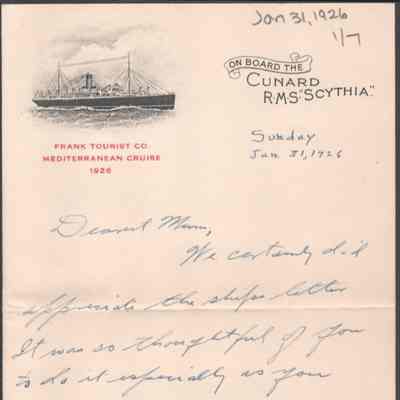 Jan 31, 1926
1/7
ON BOARD THE
CUNARD
R.M.S. "SCYTHIA".
FRANK TOURIST CO.
MEDITERRANEAN CRUISE
1926
Sunday
Jan 31, 1926
Dearest Mum,
We certainly did
appreciate the ships letter
It was so thoughtful of you
to do it especially as you